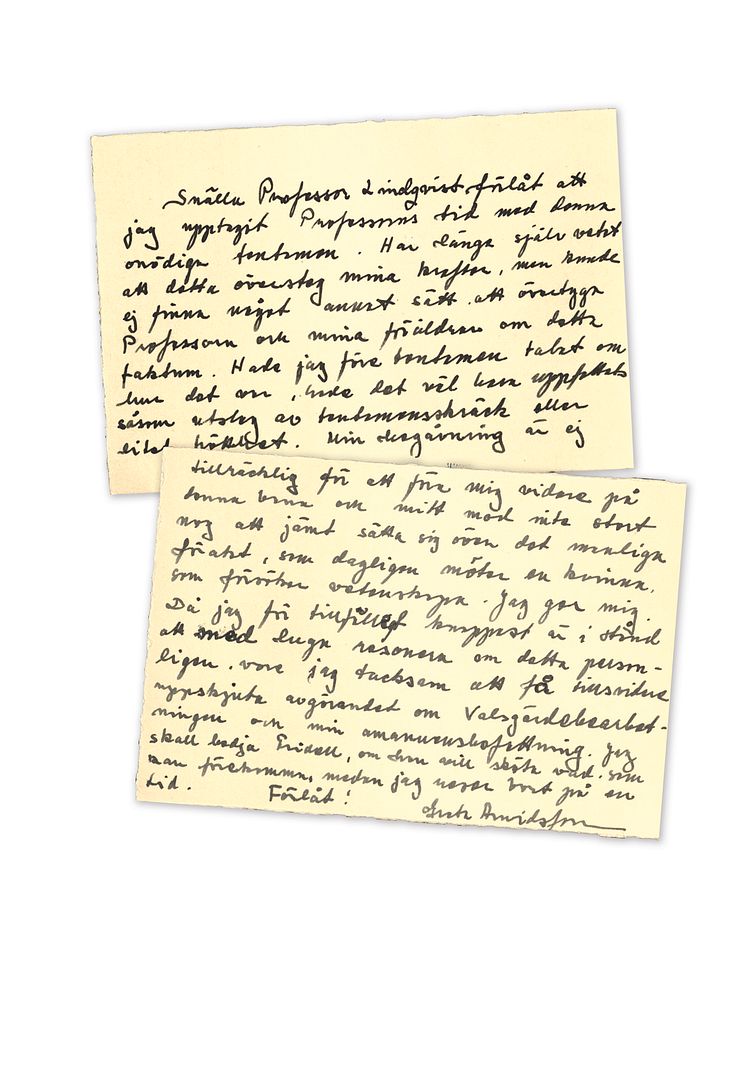 Snälla Professor Lindqvist förlåt att
jag upptagit Professorns tid med denna
onödiga tentamen. Har länge själv vetat
att detta översteg mina krafter, men kunde
ej finna något annat sätt att övertyga
Professorn och mina föräldrar om detta
faktum. Hade jag före tentamen talat om
hur det var, hade det väl bara uppfattats
såsom utslag av tentamensskräck eller
Min begåvning är ej
tillräcklig för att föra mig vidare på
denna bana och mitt mod inte stort
nog att jämt sätta sig över det manliga
förakt, som dagligen möter en kvinna,
som försöker vetenskapa. Jag ger mig.
Då jag för tillfället knappast är i stånd
att med lugn resonera om detta person-
ligen, vore jag tacksam att få tillsvidare
uppskjuta avgörandet om Valsgärdebearbet-
ningen och min amanuensbefattning. Jag
skall bedja Eridell, om hon vill sköta vad som
kan förekomma, medan jag varer bort på en
tid. Förlåt!
Greta Arwidsson